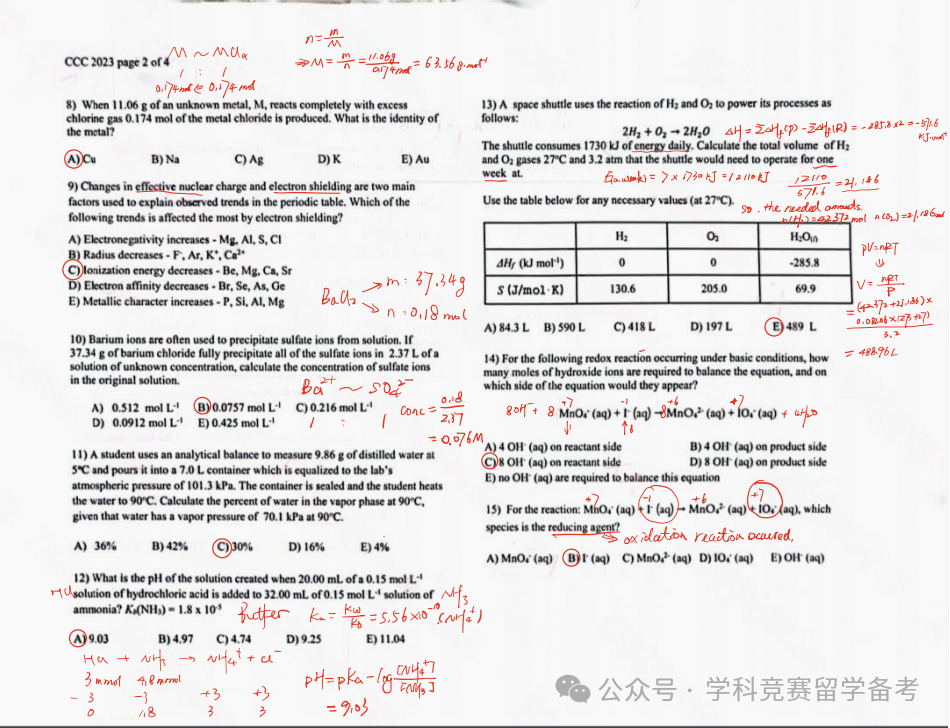 CCC 2023 page 2 of 4
M ~ MClx
1 : 1
0.174mol ← 0.174mol
n = m/M
⇒ M = m/n = 11.06g/0.174mol = 63.56 g·mol⁻¹
8) When 11.06 g of an unknown metal, M, reacts completely with excess
chlorine gas 0.174 mol of the metal chloride is produced. What is the identity of
the metal?
A) Cu B) Na C) Ag D) K E) Au
9) Changes in effective nuclear charge and electron shielding are two main
factors used to explain observed trends in the periodic table. Which of the
following trends is affected the most by electron shielding?
A) Electronegativity increases - Mg, Al, S, Cl
B) Radius decreases - F⁻, Ar, K⁺, Ca²⁺
C) Ionization energy decreases - Be, Mg, Ca, Sr
D) Electron affinity decreases - Br, Se, As, Ge
E) Metallic character increases - P, Si, Al, Mg
BaCl₂
m: 37.34g
n: 0.18 mol
10) Barium ions are often used to precipitate sulfate ions from solution. If
37.34 g of barium chloride fully precipitate all of the sulfate ions in 2.37 L of a
solution of unknown concentration, calculate the concentration of sulfate ions
in the original solution.
Ba²⁺ ~ SO₄²⁻
1 : 1
A) 0.512 mol L⁻¹ B) 0.0757 mol L⁻¹ C) 0.216 mol L⁻¹
D) 0.0912 mol L⁻¹ E) 0.425 mol L⁻¹
conc = 0.18/2.37
= 0.076M
11) A student uses an analytical balance to measure 9.86 g of distilled water at
5°C and pours it into a 7.0 L container which is equalized to the lab's
atmospheric pressure of 101.3 kPa. The container is sealed and the student heats
the water to 90°C. Calculate the percent of water in the vapor phase at 90°C,
given that water has a vapor pressure of 70.1 kPa at 90°C.
A) 36% B) 42% C) 30% D) 16% E) 4%
12) What is the pH of the solution created when 20.00 mL of a 0.15 mol L⁻¹
HCl solution of hydrochloric acid is added to 32.00 mL of 0.15 mol L⁻¹ solution of NH₃
ammonia? Kb(NH₃) = 1.8 x 10⁻⁵
buffer Ka = Kw/Kb = 5.56×10⁻¹⁰ (NH₄⁺)
A) 9.03 B) 4.97 C) 4.74 D) 9.25 E) 11.04
HCl + NH₃ → NH₄⁺ + Cl⁻
3mmol 4.8mmol
-3 -3 +3 +3
0 1.8 3 3
pH = pKa - log [NH₄⁺]/[NH₃]
= 9.03
13) A space shuttle uses the reaction of H₂ and O₂ to power its processes as
follows:
2H₂ + O₂ → 2H₂O
ΔH = ΣΔHf(P) - ΣΔHf(R) = -285.8×2 = -571.6
kJ·mol⁻¹
The shuttle consumes 1730 kJ of energy daily. Calculate the total volume of H₂
and O₂ gases 27°C and 3.2 atm that the shuttle would need to operate for one
week at.
E(a week) = 7 × 1730 kJ = 12110 kJ
12110/571.6 = 21.186
Use the table below for any necessary values (at 27°C).
so. the needed amounts.
n(H₂) = 42.372 mol n(O₂) = 21.186mol
H₂ O₂ H₂O(l)
ΔHf (kJ mol⁻¹) 0 0 -285.8
S (J/mol·K) 130.6 205.0 69.9
PV=nRT
↓
V = nRT/P
= (42.372+21.186)×0.08206×(273+27)/3.2
= 488.96L
A) 84.3 L B) 590 L C) 418 L D) 197 L E) 489 L
14) For the following redox reaction occurring under basic conditions, how
many moles of hydroxide ions are required to balance the equation, and on
which side of the equation would they appear?
+7 -1 +6 +7
8OH⁻ + 8 MnO₄⁻ (aq) + I⁻ (aq) → 8MnO₄²⁻ (aq) + IO₄⁻ (aq) + 4H₂O
↓1 ↑8
A) 4 OH⁻ (aq) on reactant side B) 4 OH⁻ (aq) on product side
C) 8 OH⁻ (aq) on reactant side D) 8 OH⁻ (aq) on product side
E) no OH⁻ (aq) are required to balance this equation
+7 -1 +6 +7
15) For the reaction: MnO₄⁻ (aq) + I⁻ (aq) → MnO₄²⁻ (aq) + IO₄⁻ (aq), which
species is the reducing agent?
→ oxidation reaction occured.
A) MnO₄⁻ (aq) B) I⁻ (aq) C) MnO₄²⁻ (aq) D) IO₄⁻ (aq) E) OH⁻ (aq)
公众号 · 学科竞赛留学备考